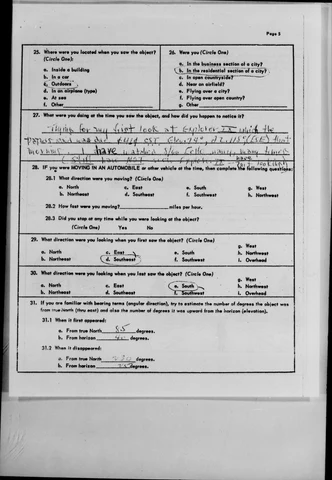 Page 3
25. Where were you located when you saw the object?
(Circle One):
a. Inside a building
b. In a car
c. Outdoors
d. In an airplane (type)
e. At sea
f. Other
26. Were you (Circle One)
a. In the business section of a city?
b. In the residential section of a city?
c. In open countryside?
d. Near an airfield?
e. Flying over a city?
f. Flying over open country?
g. Other
27. What were you doing at the time you saw the object, and how did you happen to notice it?
my first look at Explorer
papers
I have watched Echo many times
I still have NOT
28. IF you were MOVING IN AN AUTOMOBILE or other vehicle at the time, then complete the following questions:
28.1 What direction were you moving? (Circle One)
a. North
b. Northeast
c. East
d. Southeast
e. South
f. Southwest
g. West
h. Northwest
28.2 How fast were you moving? miles per hour.
28.3 Did you stop at any time while you were looking at the object?
(Circle One) Yes No
29. What direction were you looking when you first saw the object? (Circle One)
a. North
b. Northeast
c. East
d. Southeast
e. South
f. Southwest
g. West
h. Northwest
i. Overhead
30. What direction were you looking when you last saw the object? (Circle One)
a. North
b. Northeast
c. East
d. Southeast
e. South
f. Southwest
g. West
h. Northwest
i. Overhead
31. If you are familiar with bearing terms (angular direction), try to estimate the number of degrees the object was
from true North (thru east) and also the number of degrees it was upward from the horizon (elevation).
31.1 When it first appeared:
a. From true North 85 degrees.
b. From horizon degrees.
31.2 When it disappeared:
a. From true North degrees.
b. From horizon degrees.